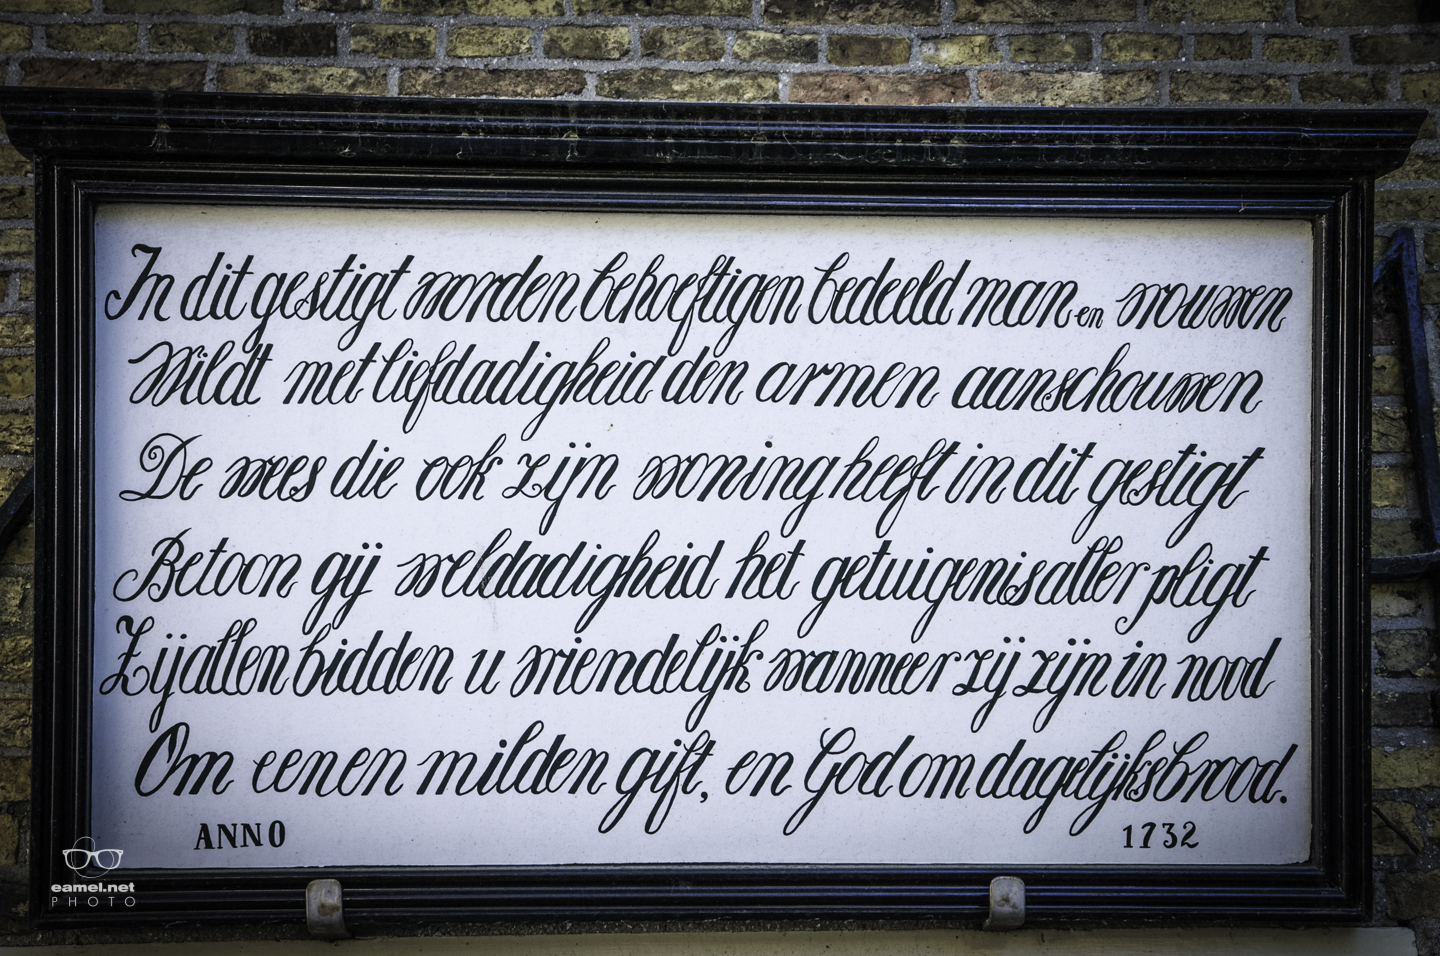 In dit gestigt worden behoeftigen bedeeld man en vrouwen
Wildt met liefdadigheid den armen aanschouwen
De wees die ook zijn woning heeft in dit gestigt
Betoon gij weldadigheid het getuigenis aller pligt
Zij allen bidden u vriendelijk wanneer zij zijn in nood
Om eenen milden gift, en God om dagelijks brood.
ANNO 1732
eamel.net
PHOTO